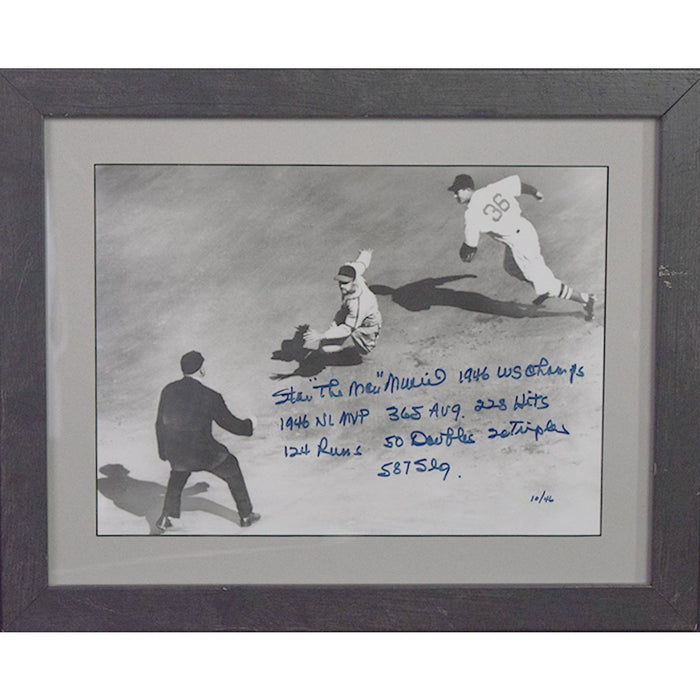 36
Stan "The Man" Musial 1946 WS Champs
1946 NL MVP 365 Avg. 228 Hits
124 Runs 50 Doubles 20 Triples
587 Slg.
10/46